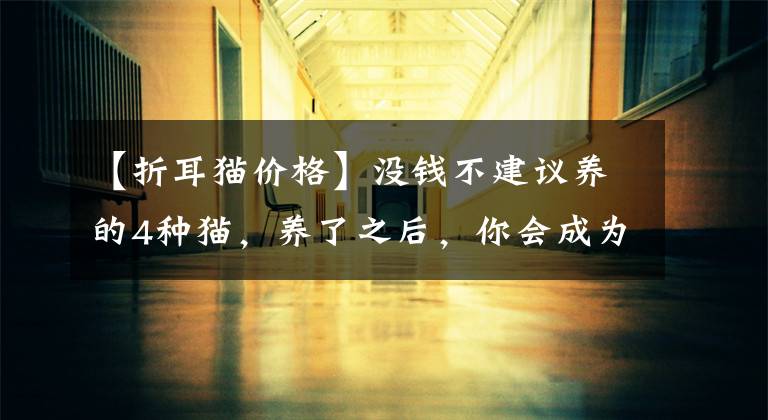 【折耳猫价格】没钱不建议养
的4种猫，养了之后，你会成为